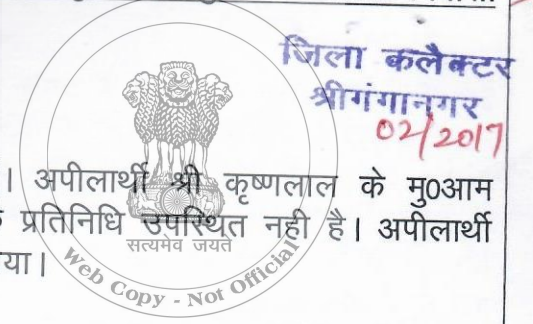 जिला कलैक्टर
श्रीगंगानगर
02/2017
। अपीलार्थी श्री कृष्णलाल के मु0आम
प्रतिनिधि उपस्थित नही है। अपीलार्थी
सत्यमेव जयते
या।
Web Copy - Not Official